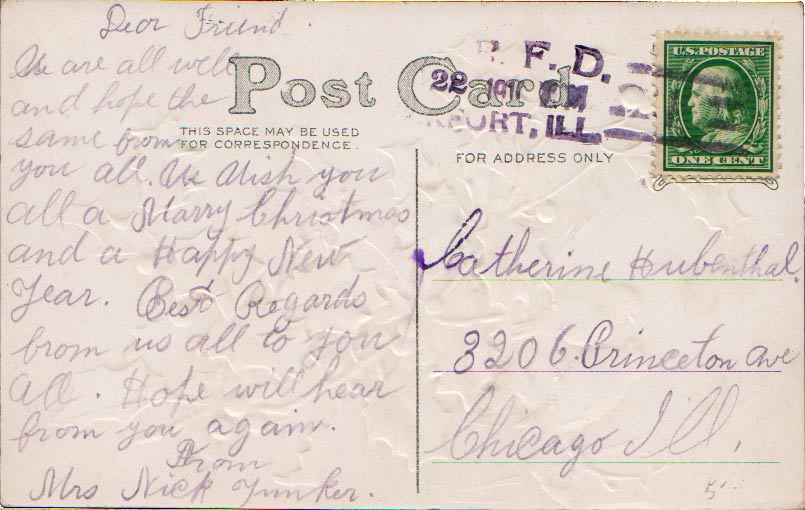 Dear Friend.
We are all well
and hope the
same from
you all. We Wish you
all a Marry Christmas
and a Happy New
Year. Best Regards
from us all to you
all. Hope will hear
from you again.
From
Mrs Nick Yunker.
Post Card
THIS SPACE MAY BE USED
FOR CORRESPONDENCE.
FOR ADDRESS ONLY
R. F. D.
22 191
ILL.
U.S. POSTAGE
ONE CENT
Catherine Hubenthal.
3206. Princeton ave
Chicago Ill,
5